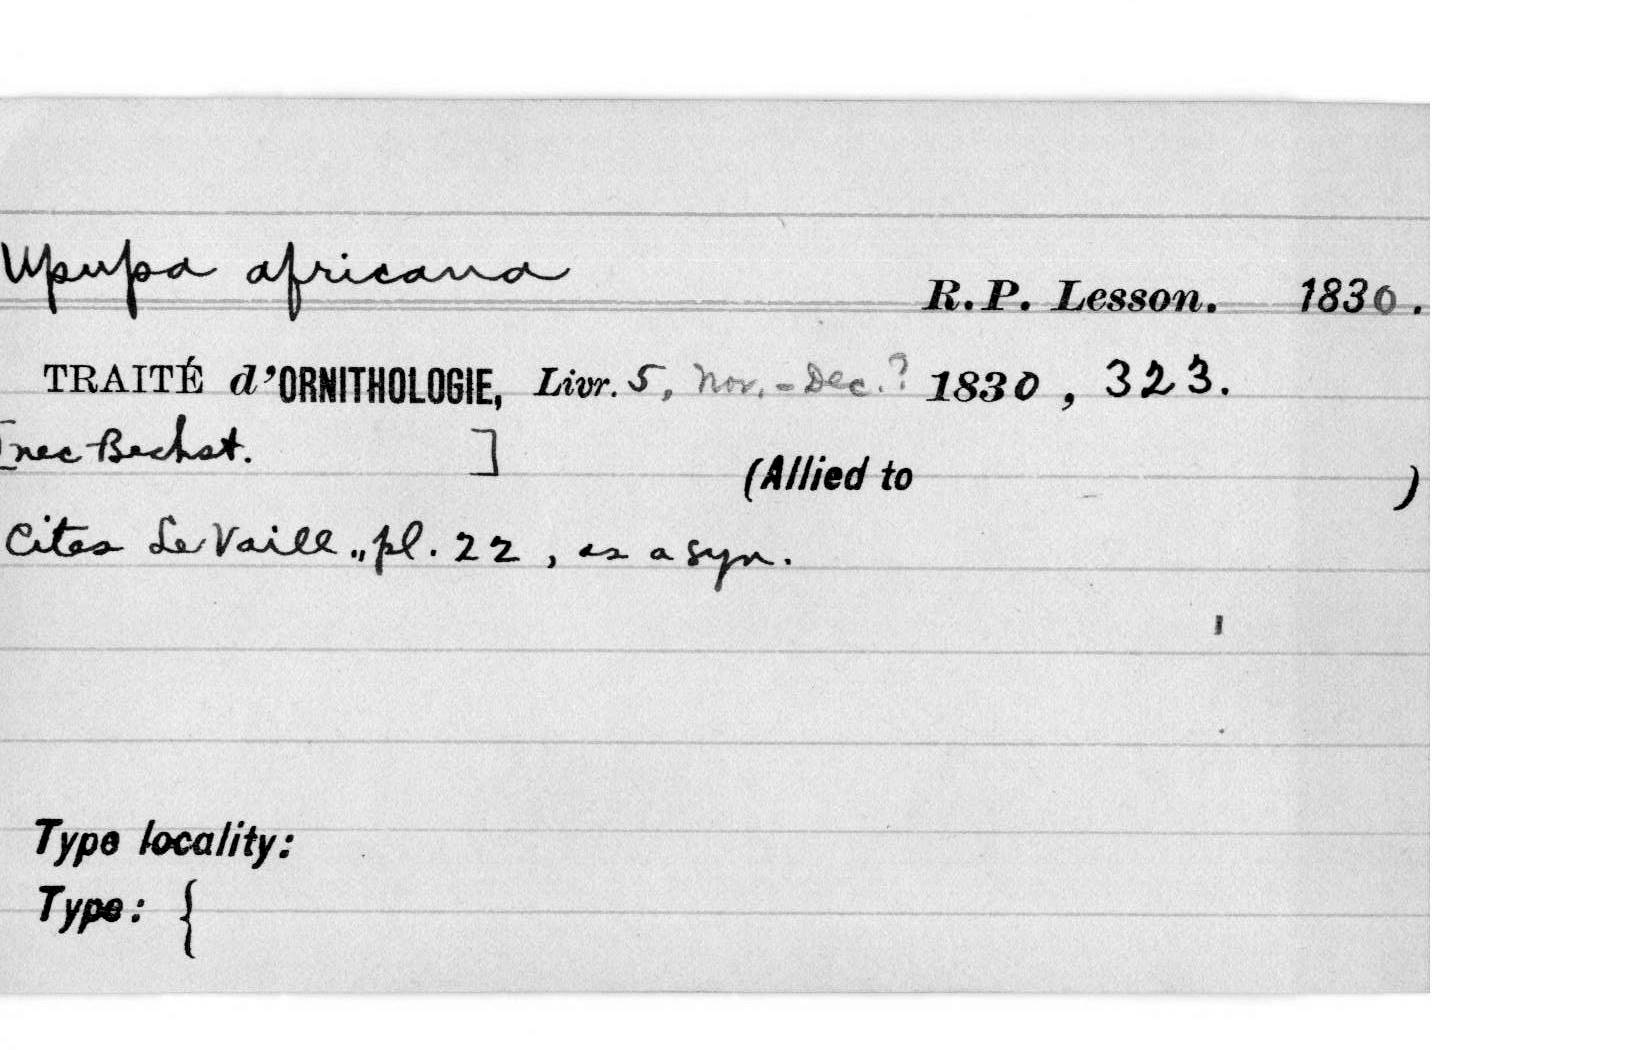 Upupa africana
R.P. Lesson. 1830.
TRAITÉ d'ORNITHOLOGIE, Livr. 5, Nov.-Dec.? 1830, 323.
[nec Bechst. ]
(Allied to )
Cites Le Vaill., pl. 22, as a syn.
Type locality:
Type: {